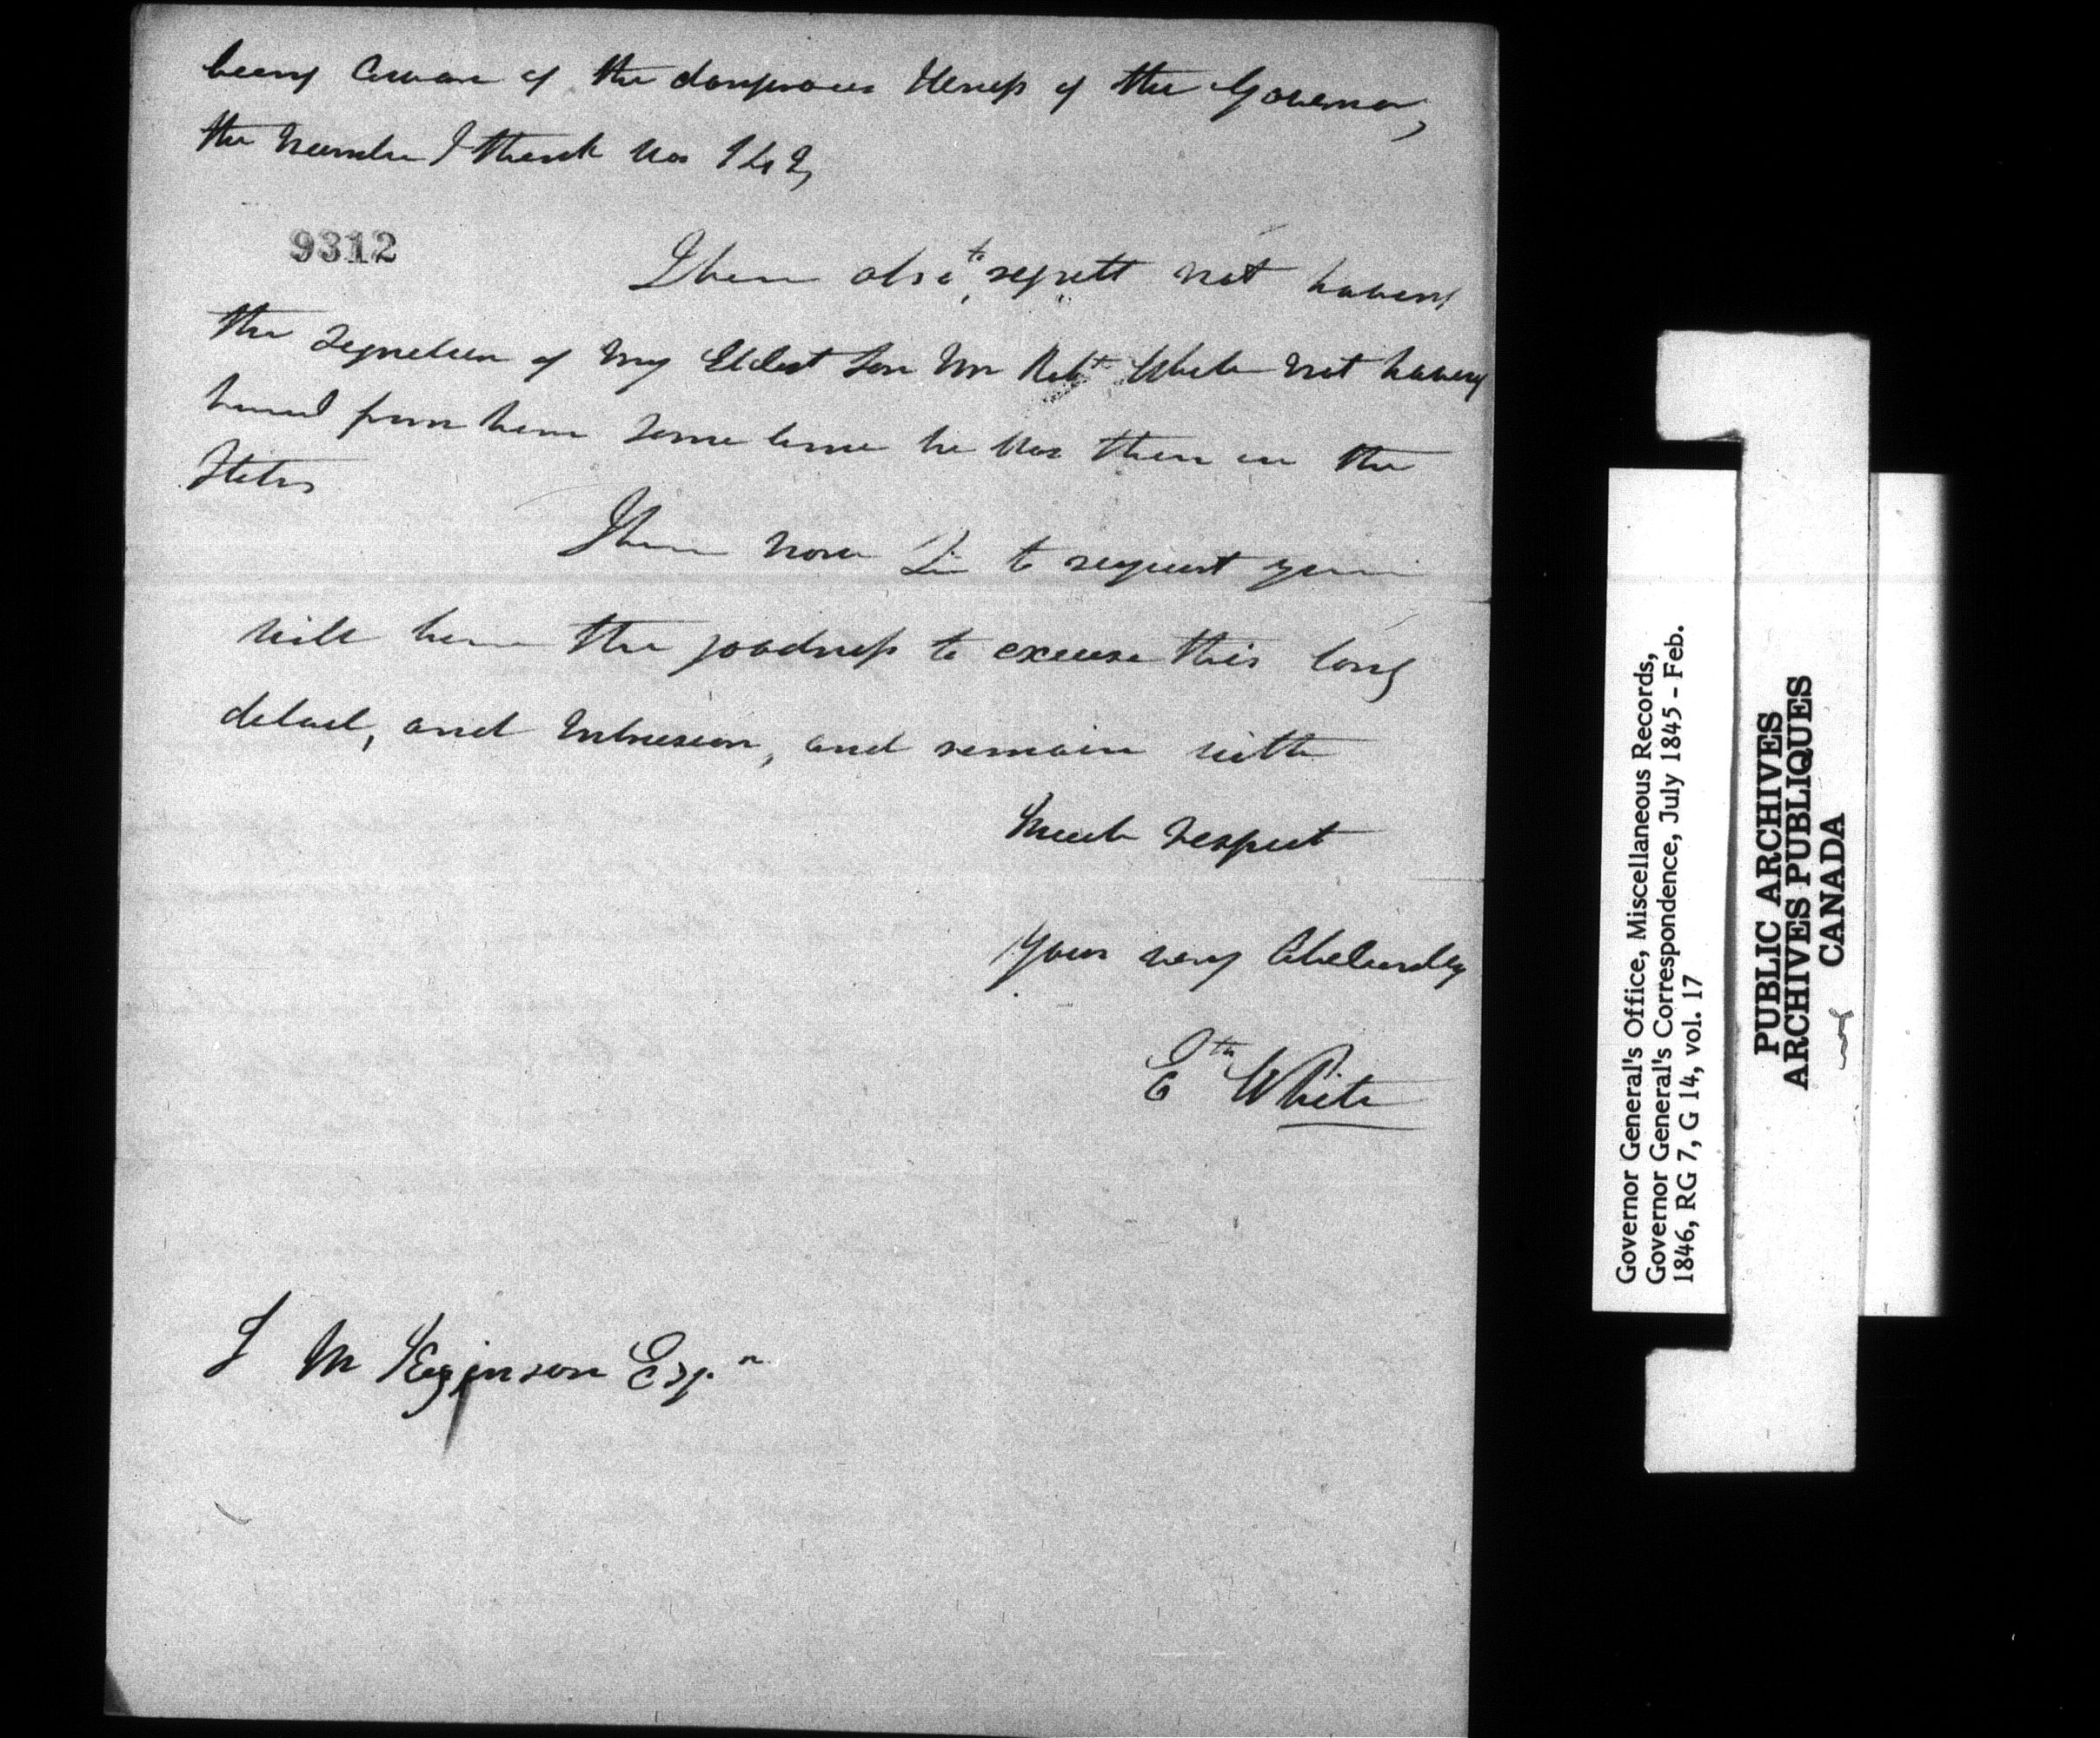 being aware of the dangerous Illness of the Governor,
the number I think was 142,
9312
I have also to regrett not having
the Signature of my Eldest Son Mr Robt White not having
heard from him some time he was then in the
States
I have now Sir to request you
will have the goodness to excuse this long
detail, and Intrusion, and remain with
Much respect
Your very Obt Humbly
Eth White
J M Higginson Esqr
Governor General's Office, Miscellaneous Records,
Governor General's Correspondence, July 1845 - Feb.
1846, RG 7, G 14, vol. 17
PUBLIC ARCHIVES
ARCHIVES PUBLIQUES
CANADA